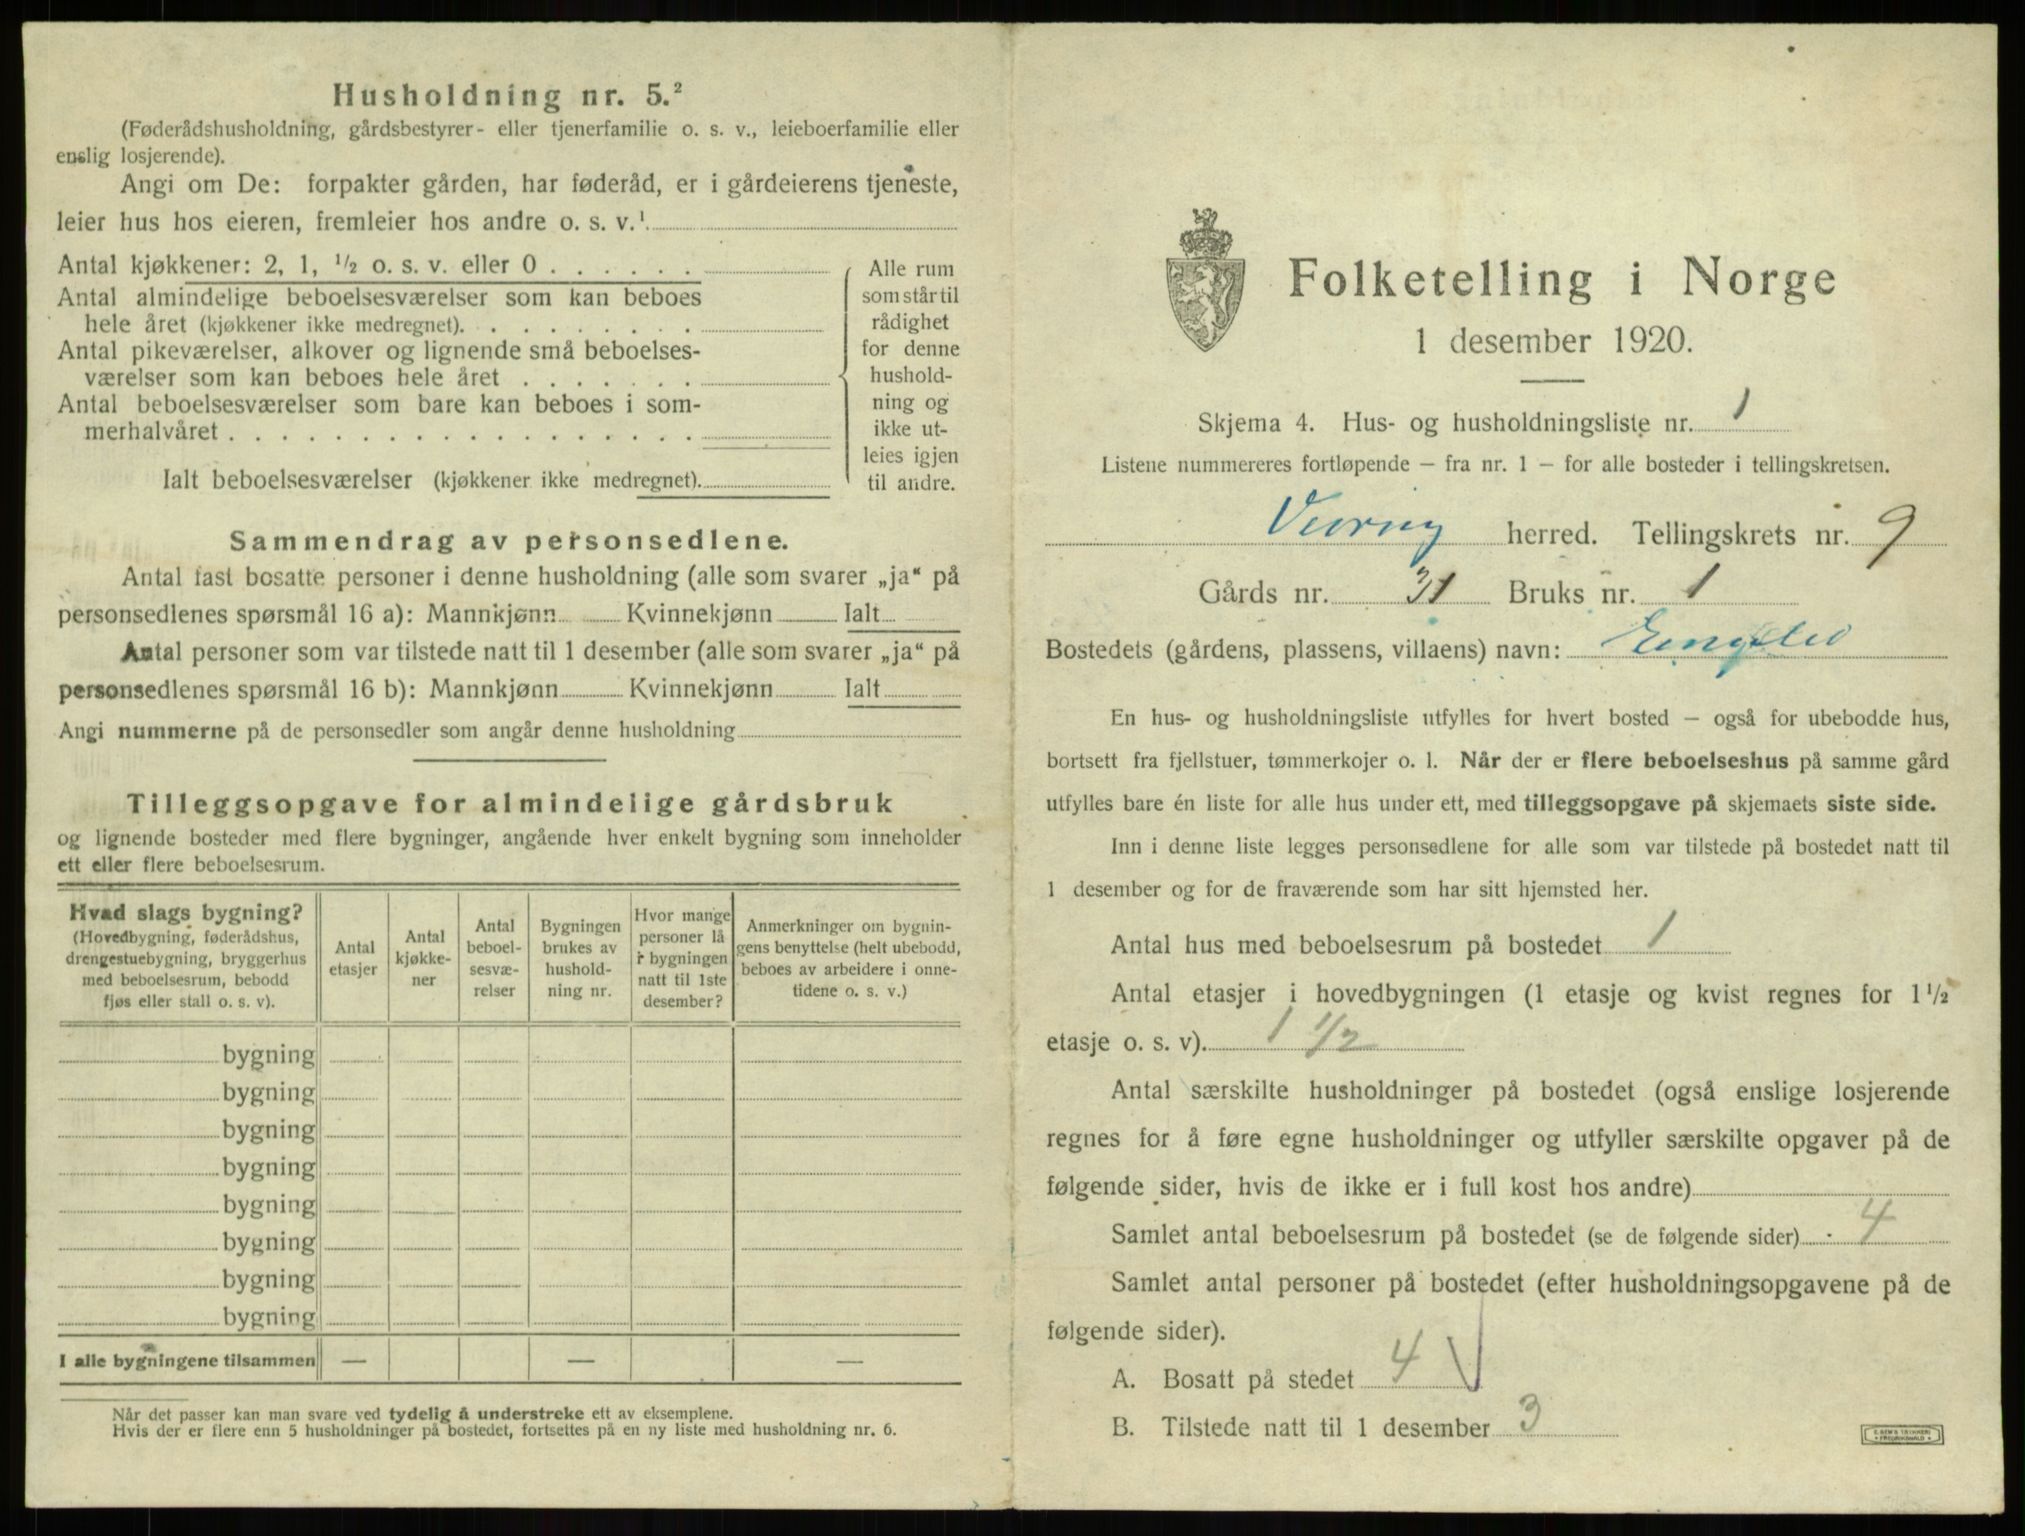 Husholdning nr. 5.²
(Føderådshusholdning, gårdsbestyrer- eller tjenerfamilie o. s. v., leieboerfamilie eller
enslig losjerende).
Angi om De: forpakter gården, har føderåd, er i gårdeierens tjeneste,
leier hus hos eieren, fremleier hos andre o. s. v.¹
Antal kjøkkener: 2, 1, ½ o. s. v. eller 0 . . . . . .
Antal almindelige beboelsesværelser som kan beboes
hele året (kjøkkener ikke medregnet). . . . . . . . .
Antal pikeværelser, alkover og lignende små beboelses-
værelser som kan beboes hele året . . . . . . .
Antal beboelsesværelser som bare kan beboes i som-
merhalvåret . . . . . . . . . . . . . . . . . .
Ialt beboelsesværelser (kjøkkener ikke medregnet).
Alle rum
som står til
rådighet
for denne
hushold-
ning og
ikke ut-
leies igjen
til andre.
Sammendrag av personsedlene.
Antal fast bosatte personer i denne husholdning (alle som svarer „ja“ på
personsedlenes spørsmål 16 a): Mannkjønn Kvinnekjønn Ialt
Antal personer som var tilstede natt til 1 desember (alle som svarer „ja“ på
personsedlenes spørsmål 16 b): Mannkjønn Kvinnekjønn Ialt
Angi nummerne på de personsedler som angår denne husholdning
Tilleggsopgave for almindelige gårdsbruk
og lignende bosteder med flere bygninger, angående hver enkelt bygning som inneholder
ett eller flere beboelsesrum.
Hvad slags bygning?
(Hovedbygning, føderådshus,
drengestuebygning, bryggerhus
med beboelsesrum, bebodd
fjøs eller stall o. s. v).
Antal
etasjer
Antal
kjøkke-
ner
Antal
beboel-
sesvæ-
relser
Bygningen
brukes av
hushold-
ning nr.
Hvor mange
personer lå
i bygningen
natt til 1ste
desember?
Anmerkninger om bygnin-
gens benyttelse (helt ubebodd,
beboes av arbeidere i onne-
tidene o. s. v.)
bygning
bygning
bygning
bygning
bygning
bygning
bygning
bygning
I alle bygningene tilsammen — — —
Når det passer kan man svare ved tydelig å understreke ett av eksemplene.
Hvis der er flere enn 5 husholdninger på bostedet, fortsettes på en ny liste med husholdning nr. 6.
Folketelling i Norge
1 desember 1920.
Skjema 4. Hus- og husholdningsliste nr. 1
Listene nummereres fortløpende – fra nr. 1 – for alle bosteder i tellingskretsen.
herred. Tellingskrets nr. 9
Gårds nr. 31 Bruks nr. 1
Bostedets (gårdens, plassens, villaens) navn:
En hus- og husholdningsliste utfylles for hvert bosted – også for ubebodde hus,
bortsett fra fjellstuer, tømmerkojer o. l. Når der er flere beboelseshus på samme gård
utfylles bare én liste for alle hus under ett, med tilleggsopgave på skjemaets siste side.
Inn i denne liste legges personsedlene for alle som var tilstede på bostedet natt til
1 desember og for de fraværende som har sitt hjemsted her.
Antal hus med beboelsesrum på bostedet 1
Antal etasjer i hovedbygningen (1 etasje og kvist regnes for 1½
etasje o. s. v). 1 ½
Antal særskilte husholdninger på bostedet (også enslige losjerende
regnes for å føre egne husholdninger og utfyller særskilte opgaver på de
følgende sider, hvis de ikke er i full kost hos andre)
Samlet antal beboelsesrum på bostedet (se de følgende sider) 4
Samlet antal personer på bostedet (efter husholdningsopgavene på de
følgende sider).
A. Bosatt på stedet 4
B. Tilstede natt til 1 desember 3